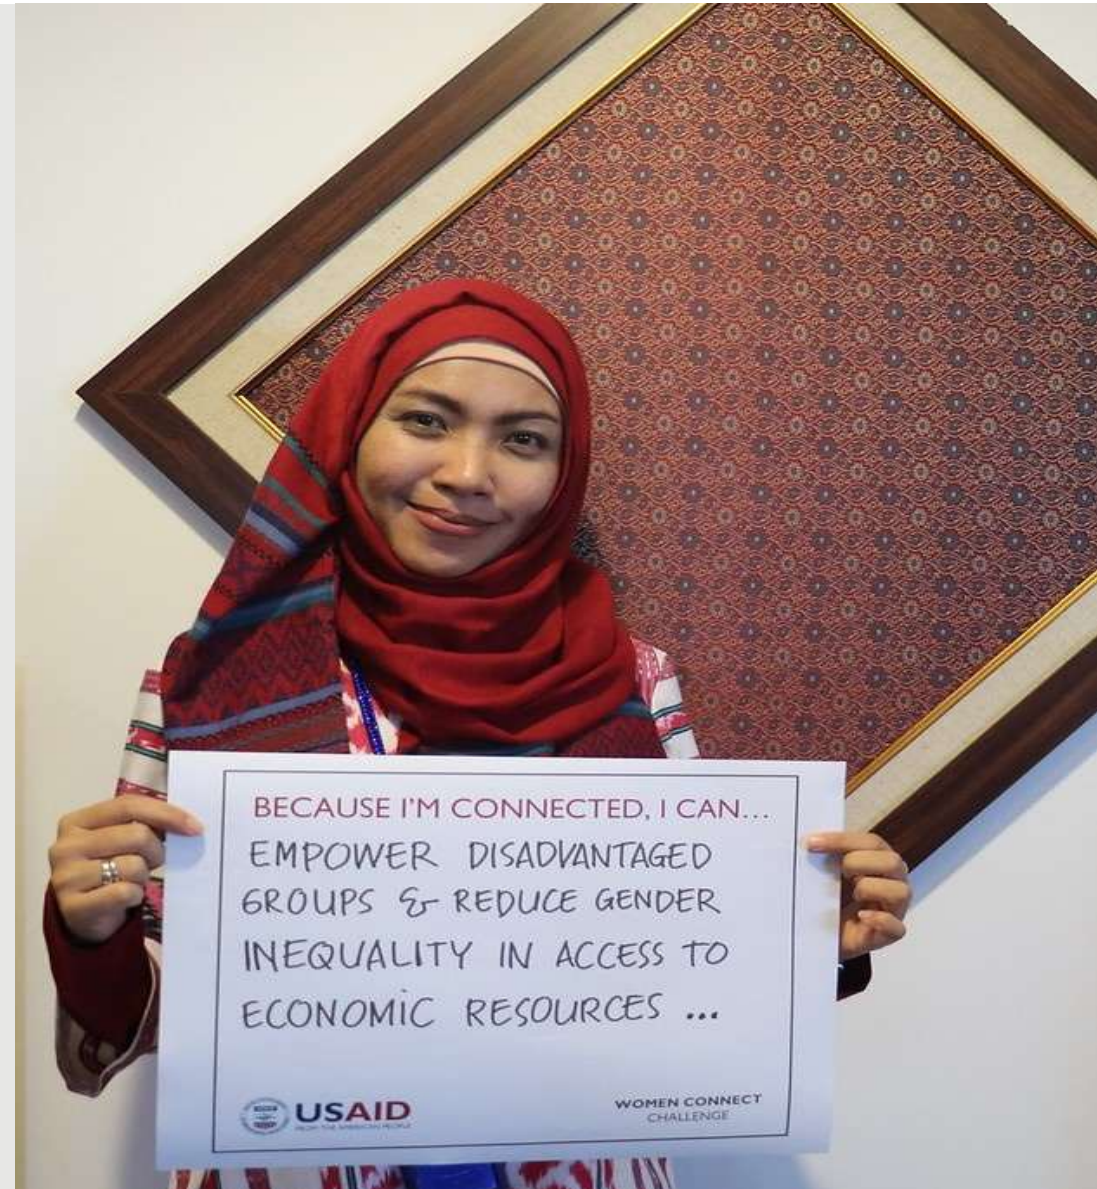 BECAUSE I'M CONNECTED, I CAN...
EMPOWER DISADVANTAGED
GROUPS & REDUCE GENDER
INEQUALITY IN ACCESS TO
ECONOMIC RESOURCES ...
USAID
FROM THE AMERICAN PEOPLE
WOMEN CONNECT
CHALLENGE